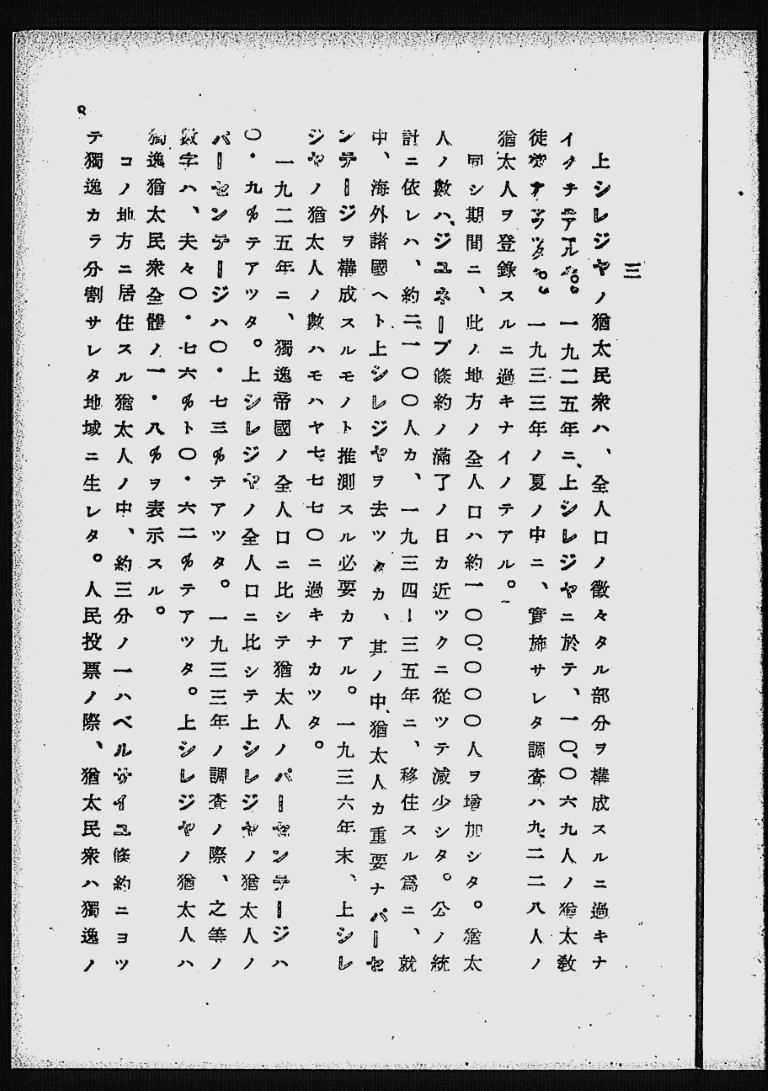 三
上シレジヤノ猶太民衆ハ、全人口ノ微々タル部分ヲ構成スルニ過キナ
イ 一九二五年ニ、上シレジヤニ於テ、一〇、〇六九人ノ猶太敎
徒 一九三三年ノ夏ノ中ニ、實施サレタ調査ハ九、二二八人ノ
猶太人ヲ登錄スルニ過キナイノテアル。
同シ期間ニ、此ノ地方ノ全人口ハ約一〇〇、〇〇〇人ヲ增加シタ。猶太
人ノ數ハ、ジユネーブ條約ノ滿了ノ日カ近ツクニ從ツテ減少シタ。公ノ統
計ニ依レハ、約二、一〇〇人カ、一九三四ー三五年ニ、移住スル爲ニ、就
中、海外諸國ヘト上シレジヤヲ去ツタカ、其ノ中、猶太人カ重要ナパーセ
ンテージヲ構成スルモノト推測スル必要カアル。一九三六年末、上シレ
ジヤノ猶太人ノ數ハモハヤ七七七〇ニ過キナカツタ。
一九二五年ニ、獨逸帝國ノ全人口ニ比シテ猶太人ノパーセンテージハ
〇・九%テアツタ。上シレジヤノ全人口ニ比シテ上シレジヤノ猶太人ノ
パーセンテージハ〇・七三%テアツタ。一九三三年ノ調査ノ際、之等ノ
數字ハ、夫々〇・七六%ト〇・六二%テアツタ。上シレジヤノ猶太人ハ
獨逸猶太民衆全體ノ一・八%ヲ表示スル。
コノ地方ニ居住スル猶太人ノ中、約三分ノ一ハベルサイユ條約ニヨツ
テ獨逸カラ分割サレタ地域ニ生レタ。人民投票ノ際、猶太民衆ハ獨逸ノ
8